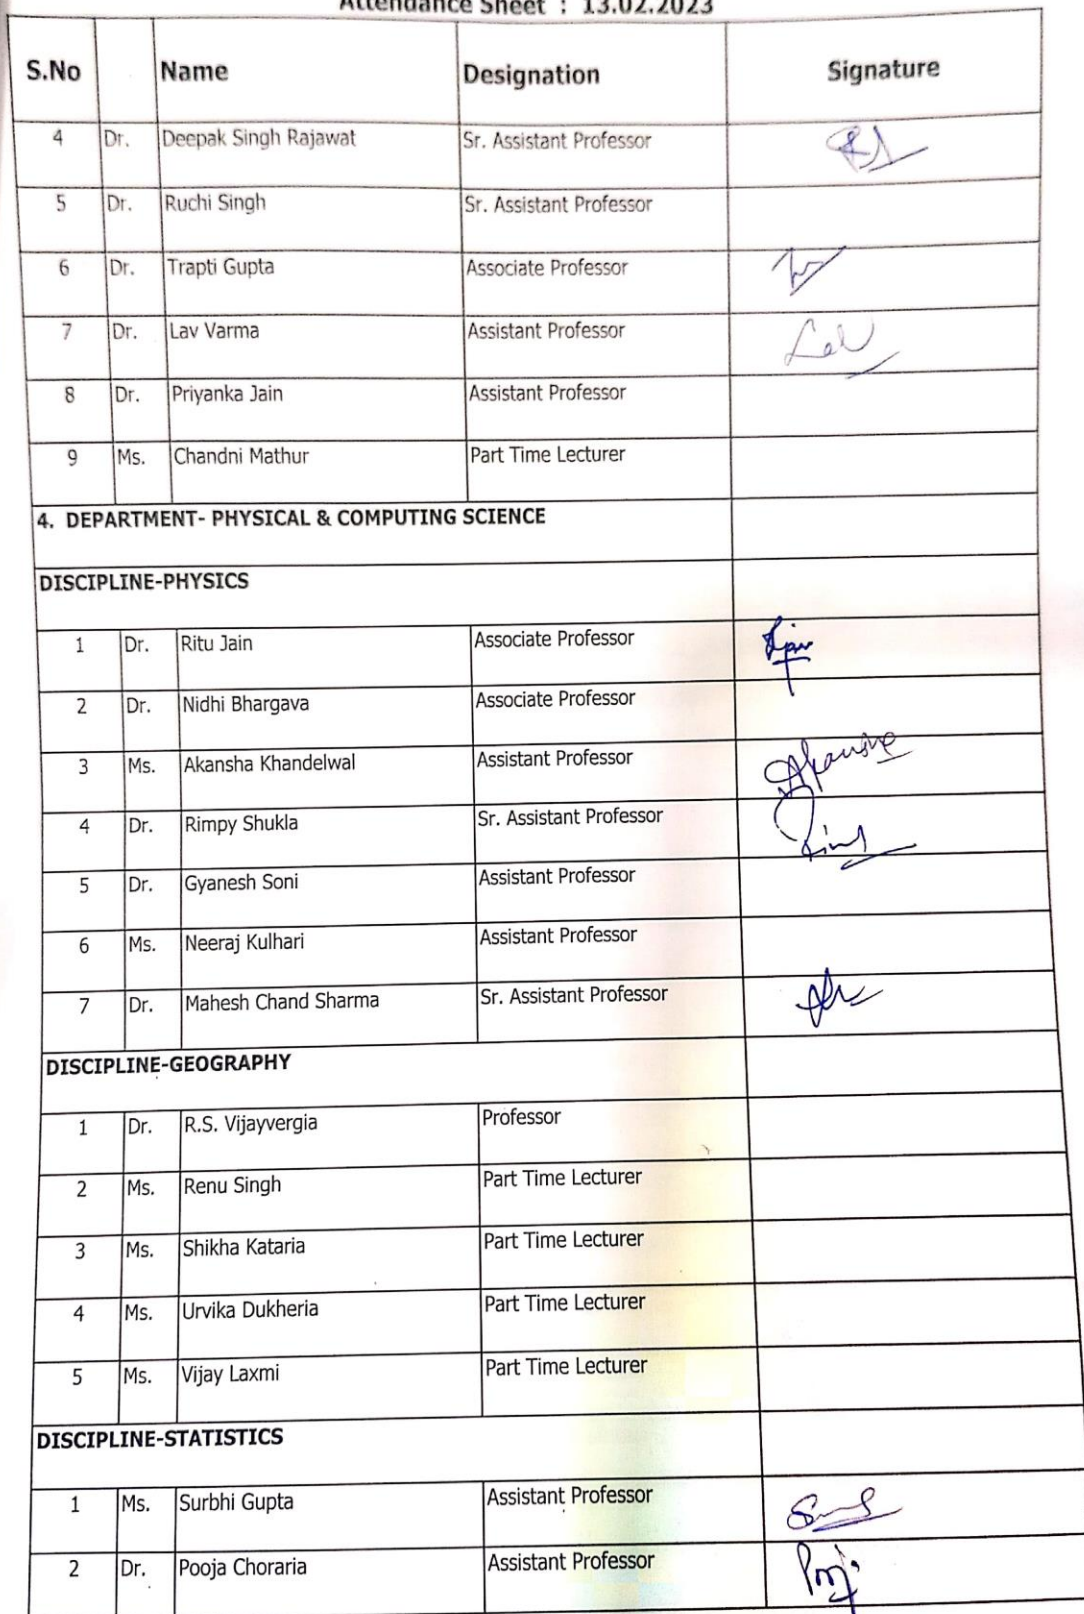 Attendance Sheet : 13.02.2023
S.No Name Designation Signature
4 Dr. Deepak Singh Rajawat Sr. Assistant Professor
5 Dr. Ruchi Singh Sr. Assistant Professor
6 Dr. Trapti Gupta Associate Professor
7 Dr. Lav Varma Assistant Professor Lav
8 Dr. Priyanka Jain Assistant Professor
9 Ms. Chandni Mathur Part Time Lecturer
4. DEPARTMENT- PHYSICAL & COMPUTING SCIENCE
DISCIPLINE-PHYSICS
1 Dr. Ritu Jain Associate Professor
2 Dr. Nidhi Bhargava Associate Professor
3 Ms. Akansha Khandelwal Assistant Professor Akansha
4 Dr. Rimpy Shukla Sr. Assistant Professor
5 Dr. Gyanesh Soni Assistant Professor
6 Ms. Neeraj Kulhari Assistant Professor
7 Dr. Mahesh Chand Sharma Sr. Assistant Professor
DISCIPLINE-GEOGRAPHY
1 Dr. R.S. Vijayvergia Professor
2 Ms. Renu Singh Part Time Lecturer
3 Ms. Shikha Kataria Part Time Lecturer
4 Ms. Urvika Dukheria Part Time Lecturer
5 Ms. Vijay Laxmi Part Time Lecturer
DISCIPLINE-STATISTICS
1 Ms. Surbhi Gupta Assistant Professor
2 Dr. Pooja Choraria Assistant Professor